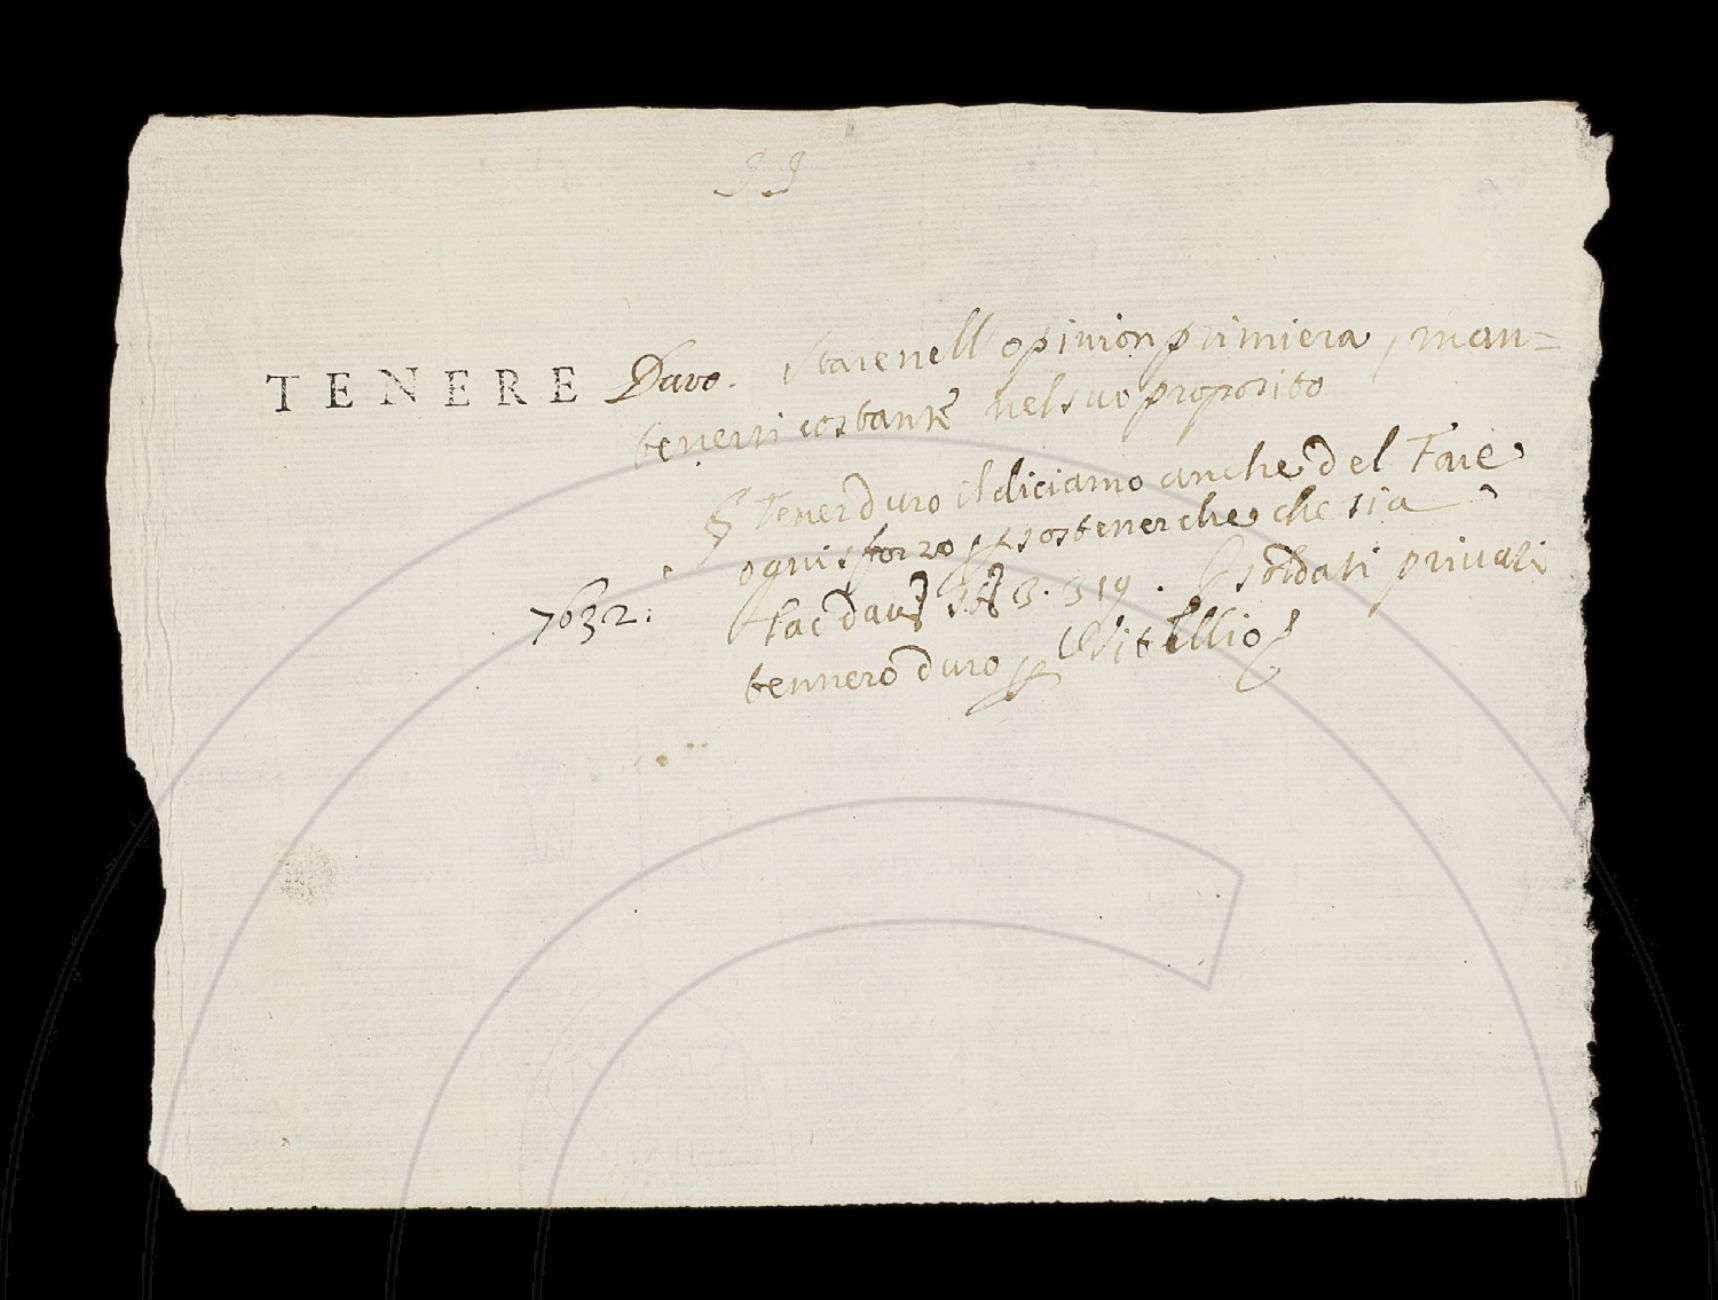 TENERE Duro. Stare nell'opinion primiera, man=
tenersi costante nel suo proposito
§ Tener duro il diciamo anche del Fare
ogni sforzo p sostener che che sia
7632: Tac Dav 3. 319. I soldati privati
tennero duro p Vitellio